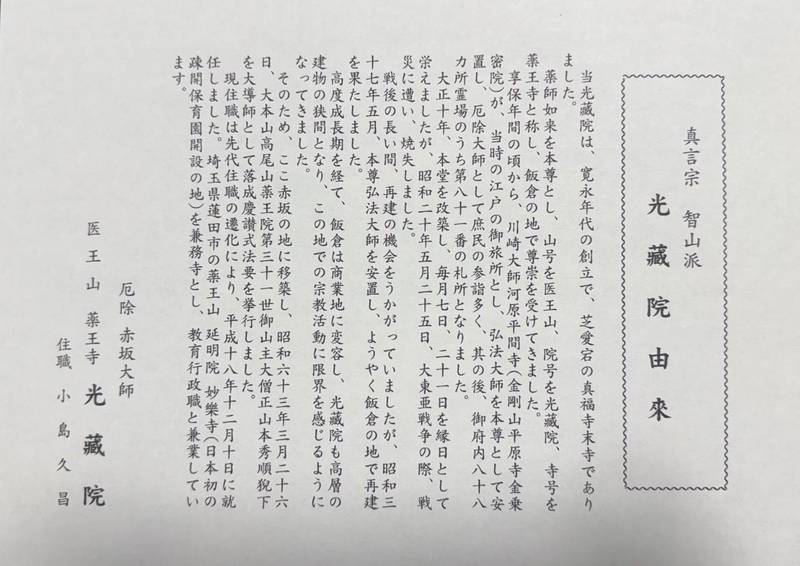 真言宗 智山派
光藏院由來
当光藏院は、寛永年代の創立で、芝愛宕の真福寺末寺であり
ました。
薬師如来を本尊とし、山号を医王山、院号を光藏院、寺号を
薬王寺と称し、飯倉の地で尊崇を受けてきました。
享保年間の頃から、川崎大師河原平間寺(金剛山平原寺金乗
密院)が、当時の江戸の御旅所とし、弘法大師を本尊として安
置し、厄除大師として庶民の参詣多く、其の後、御府内八十八
カ所霊場のうち第八十一番の札所となりました。
大正十年、本堂を改築し、毎月七日、二十一日を縁日として
栄えましたが、昭和二十年五月二十五日、大東亜戦争の際、戦
災に遭い、焼失しました。
戦後の長い間、再建の機会をうかがっていましたが、昭和三
十七年五月、本尊弘法大師を安置し、ようやく飯倉の地で再建
を果たしました。
高度成長期を経て、飯倉は商業地に変容し、光藏院も高層の
建物の狭間となり、この地での宗教活動に限界を感じるように
なってきました。
そのため、ここ赤坂の地に移築し、昭和六十三年三月二十六
日、大本山高尾山薬王院第三十一世御山主大僧正山本秀順猊下
を大導師として落成慶讃式法要を挙行しました。
現住職は先代住職の遷化により、平成十八年十二月十日に就
任しました。埼玉県蓮田市の薬王山 延明院 妙樂寺(日本初の
疎開保育園開設の地)を兼務寺とし、教育行政職と兼業してい
ます。
厄除 赤坂大師
医王山 薬王寺 光藏院
住職 小島久昌